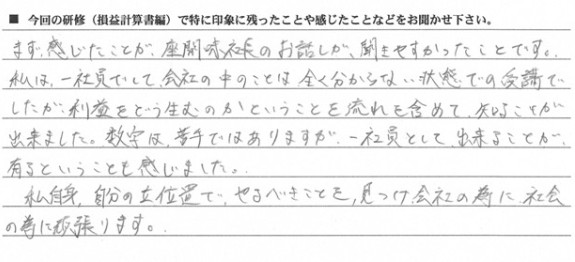 ■ 今回の研修（損益計算書編）で特に印象に残ったことや感じたことなどをお聞かせ下さい。
まず感じたことが、座間味社長のお話しが、聞きやすかったことです。
私は、一社員でして、会社の中のことは全く分からない状態での受講で
したが、利益をどう生むのかということを流れも含めて、知ることが
出来ました。数字は、苦手ではありますが、一社員として、出来ることが、
有るということも感じました。
私自身、自分の立位置で、やるべきことを、見つけ、会社の為に、社会
の為に頑張ります。